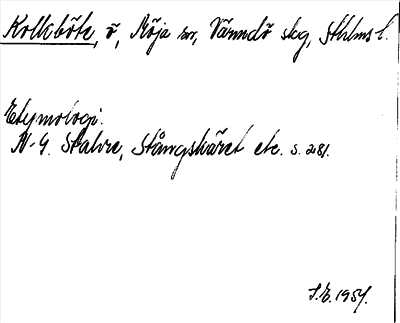 Kolkböte, ö, Möja sn, Värmdö skg, Sthlms l.
Etymologi.
N-G. Stalvre, Stångskäret etc. s. 281.
S.E. 1954.